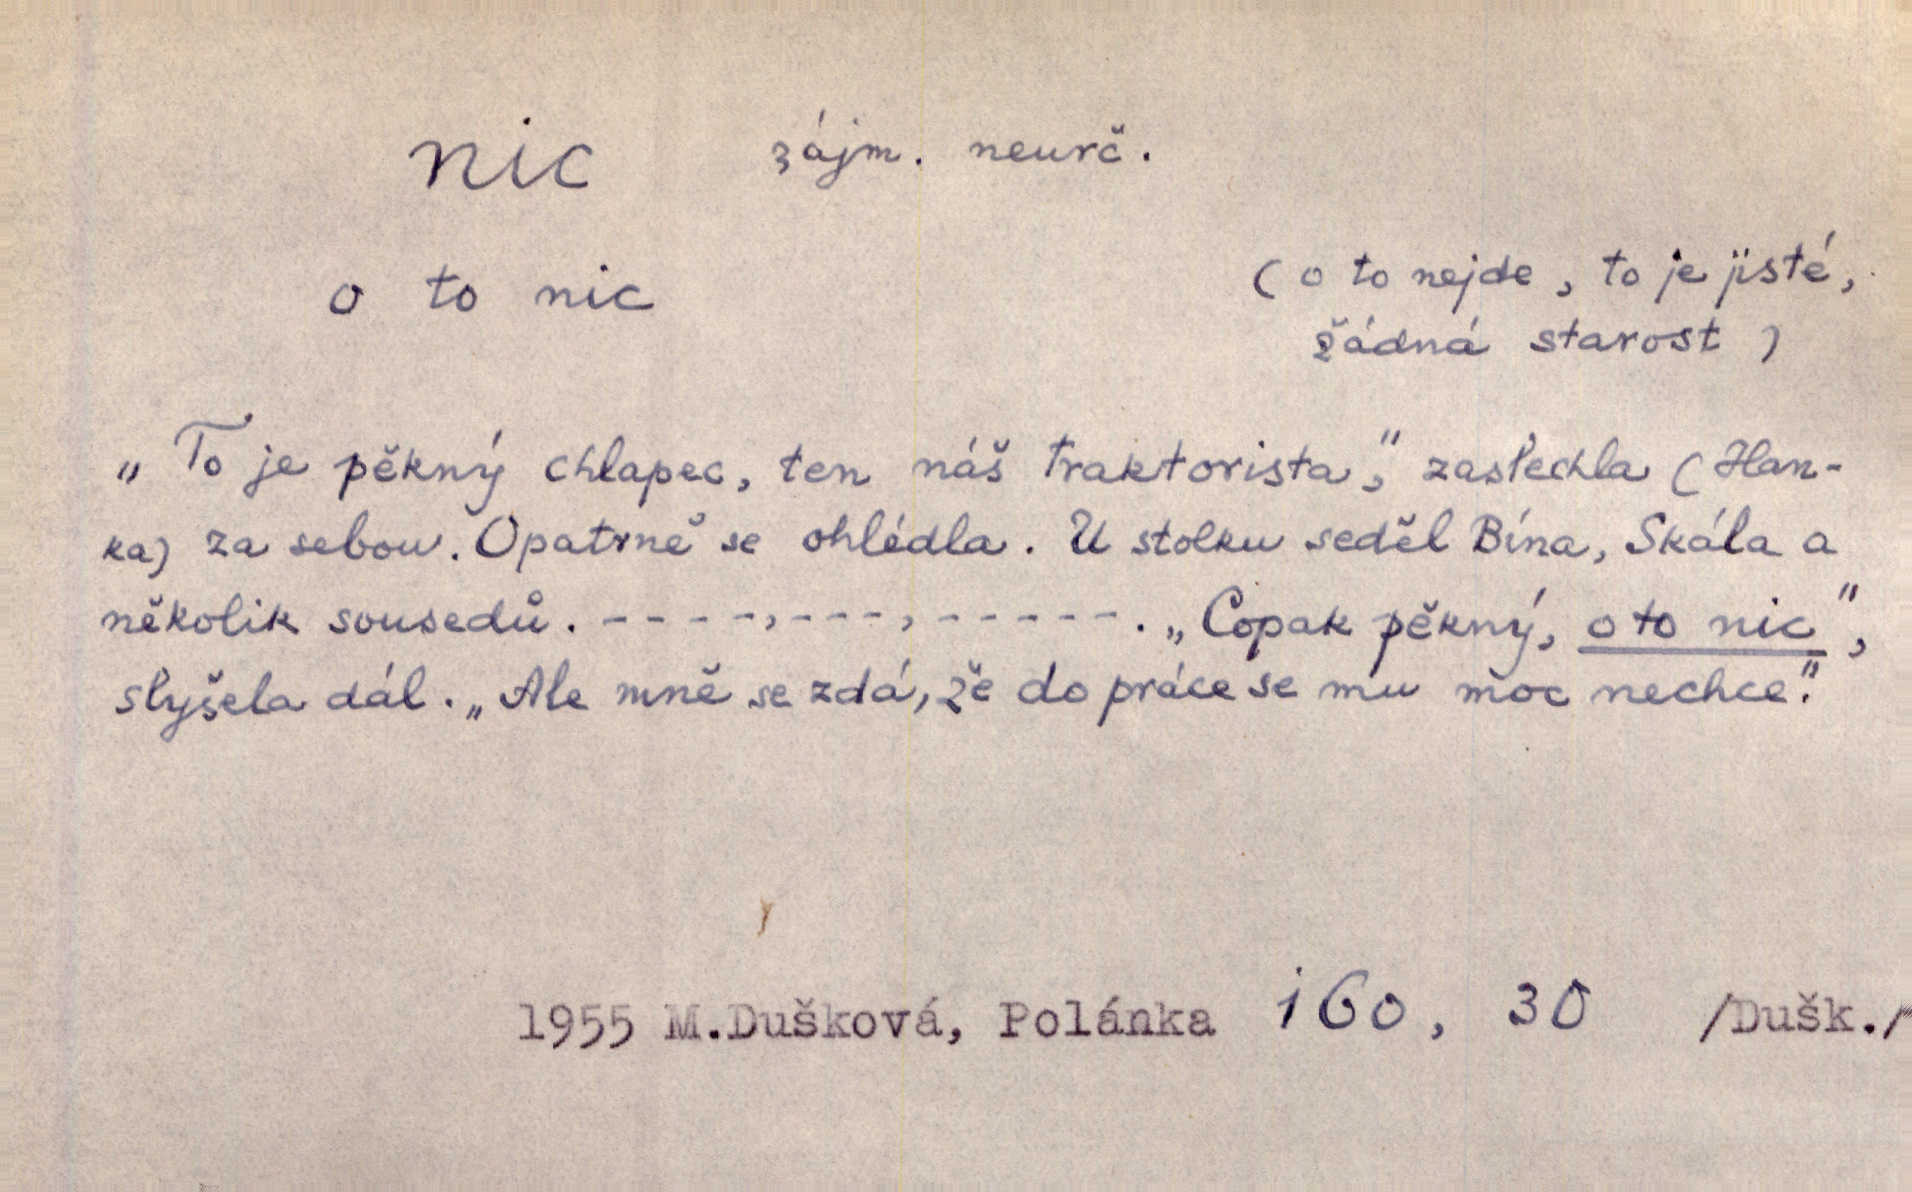 nic zájm. neurč.
o to nic (o to nejde, to je jisté,
žádná starost)
„To je pěkný chlapec, ten náš traktorista," zaslechla (Han-
ka) za sebou. Opatrně se ohlédla. U stolku seděl Bína, Skála a
několik sousedů. - - - -, - - -, - - - - - -. „Copak pěkný, o to nic",
slyšela dál. „Ale mně se zdá, že do práce se mu moc nechce."
1955 M.Dušková, Polánka 160, 30 /Dušk./